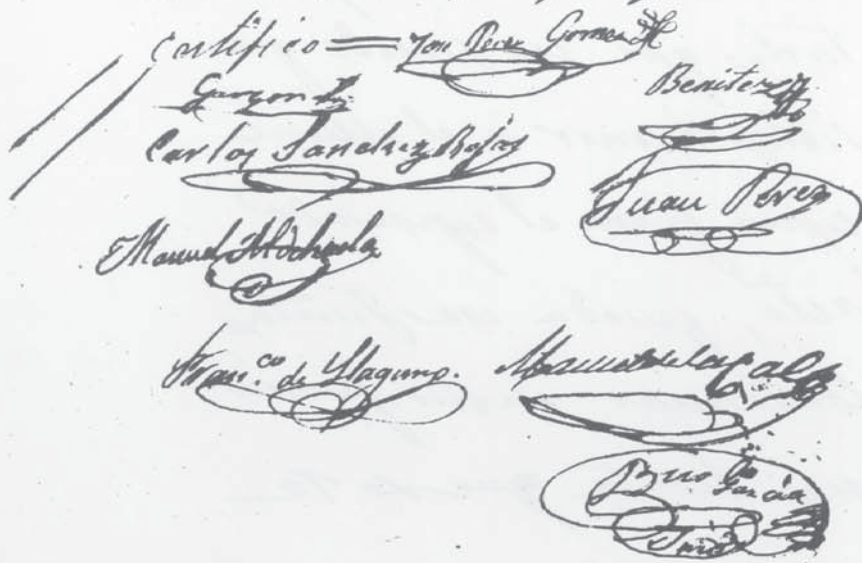 certifico = Jose Perez Gomez
Garzon
Benitez
Carlos Sanchez Rojas
Juan Perez
Manuel
Fran.co de Llaguno.
Manuel de la Cal
Garcia